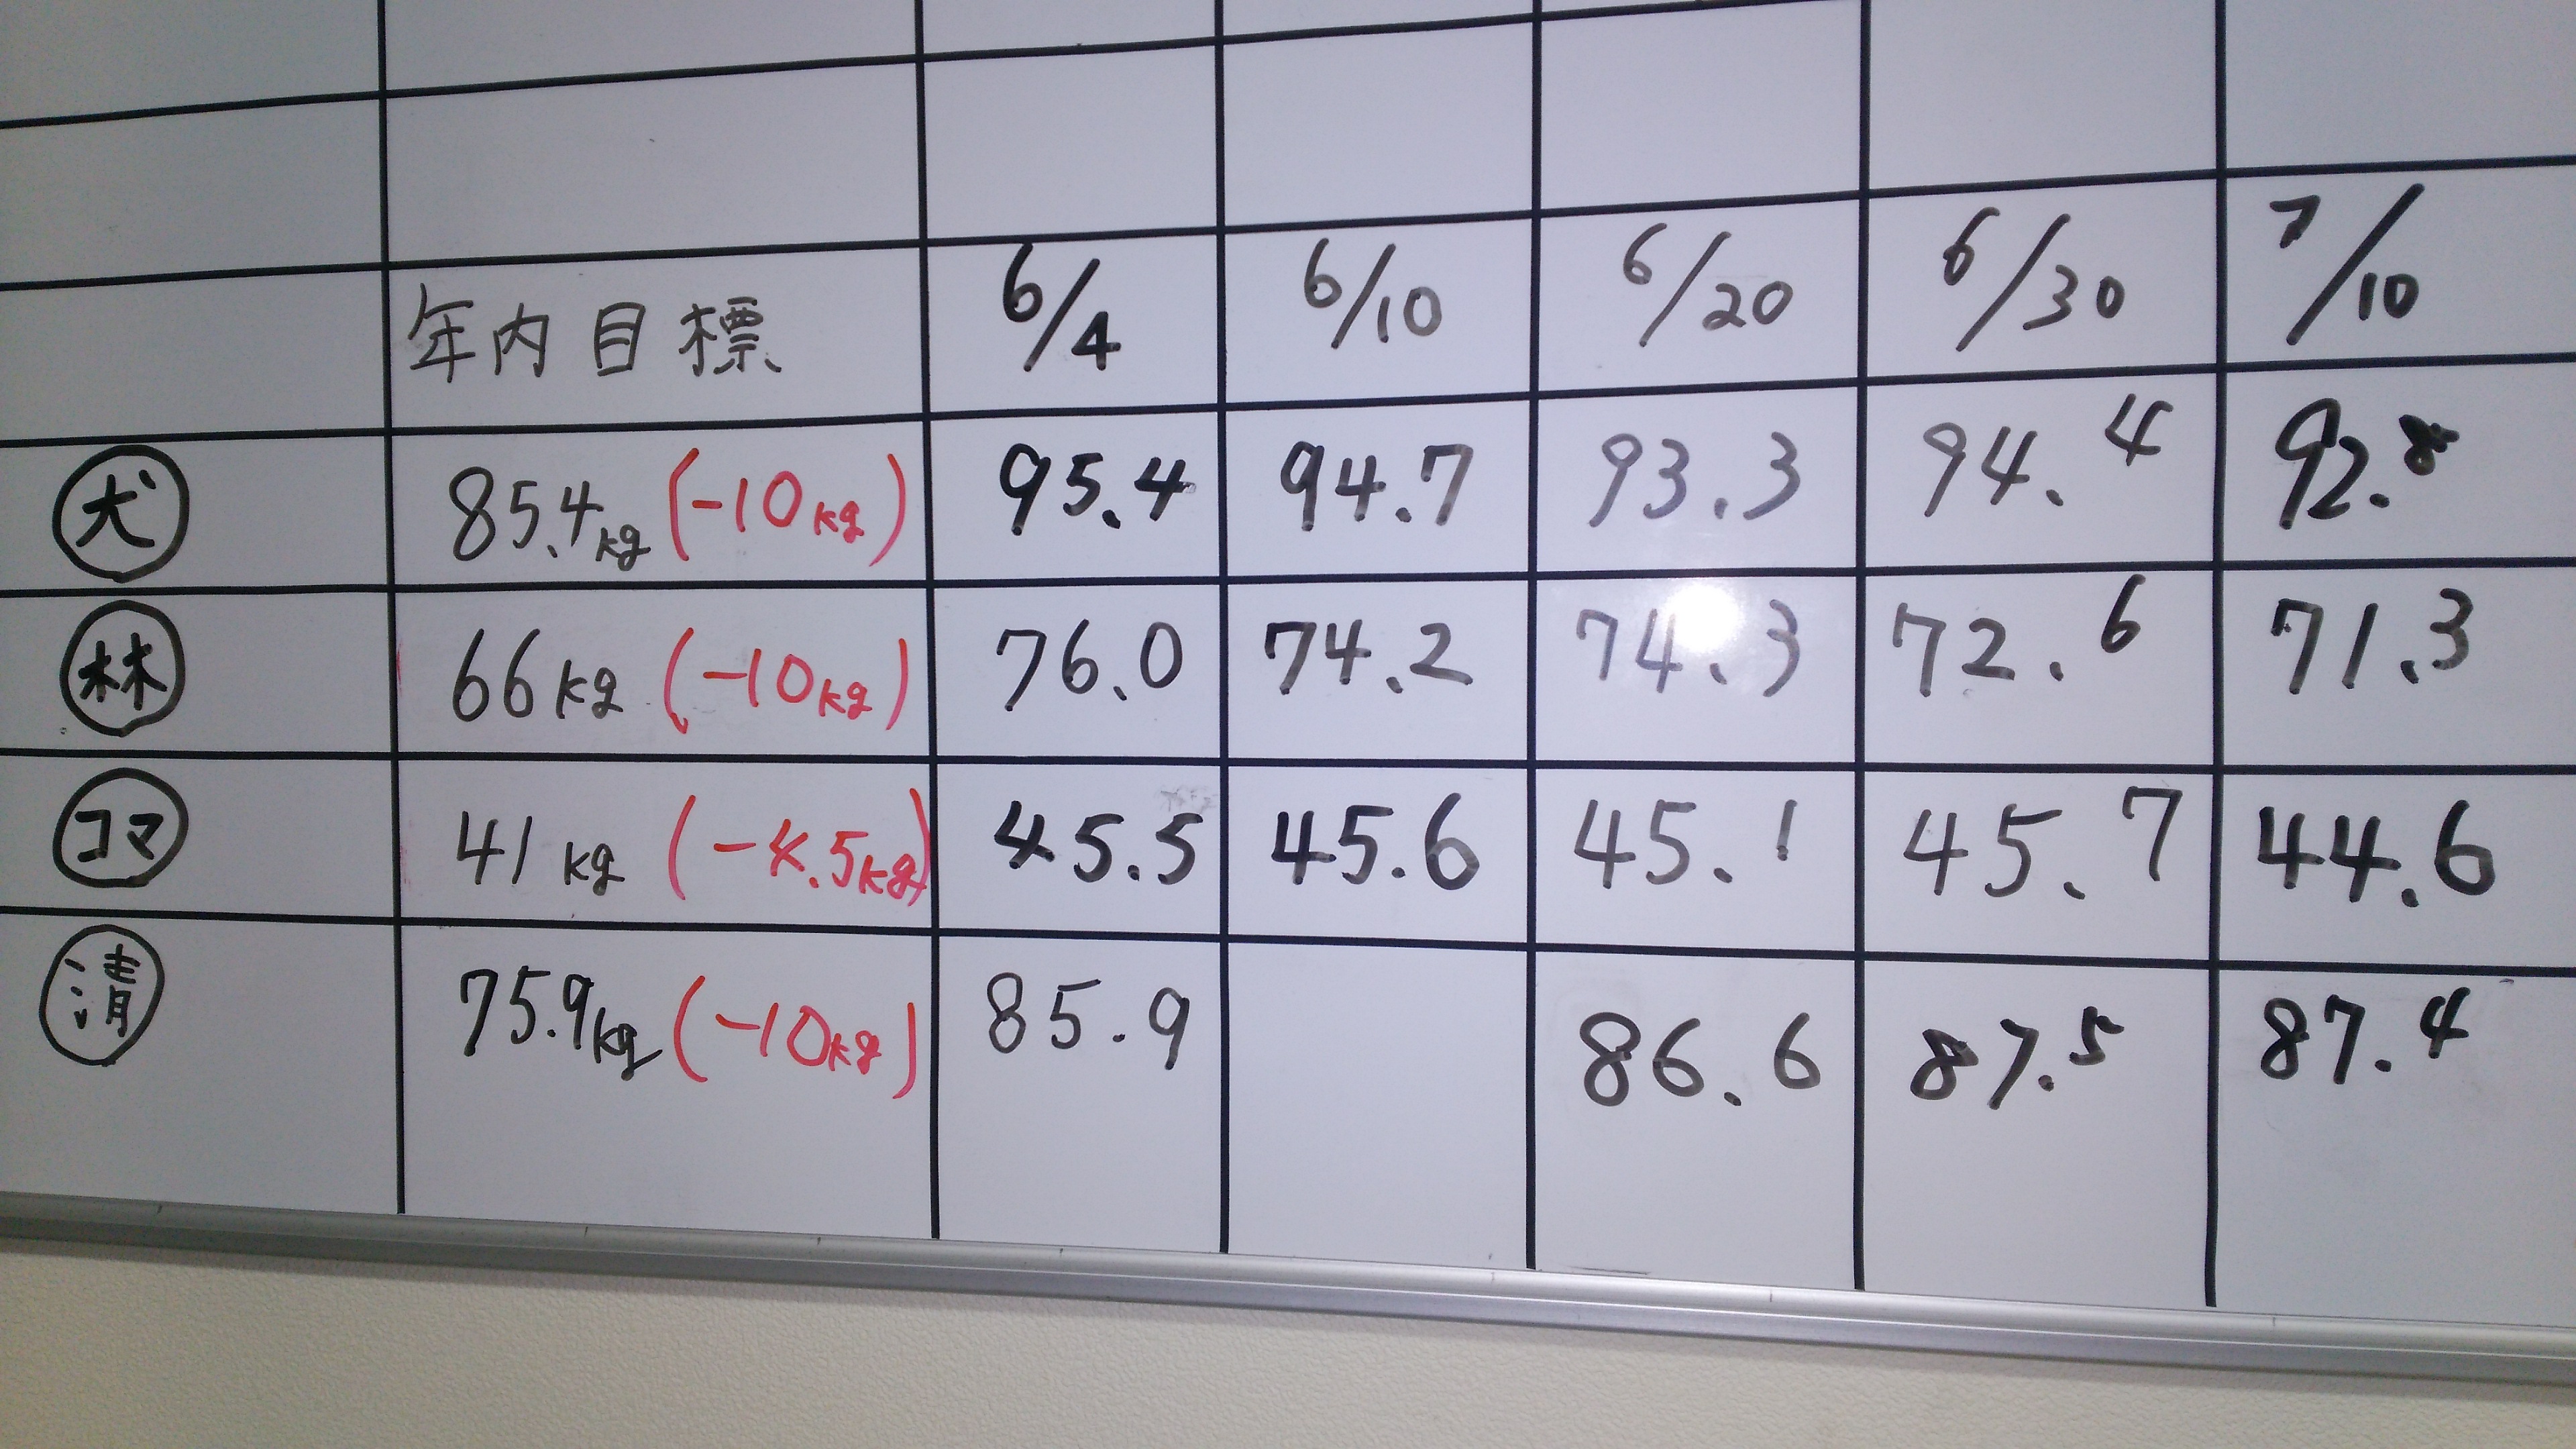 年内目標 6/4 6/10 6/20 6/30 7/10
犬 85.4kg (-10kg) 95.4 94.7 93.3 94.4 92.8
林 66kg (-10kg) 76.0 74.2 74.3 72.6 71.3
コマ 41kg (-4.5kg) 45.5 45.6 45.1 45.7 44.6
清 75.9kg (-10kg) 85.9 86.6 87.5 87.4